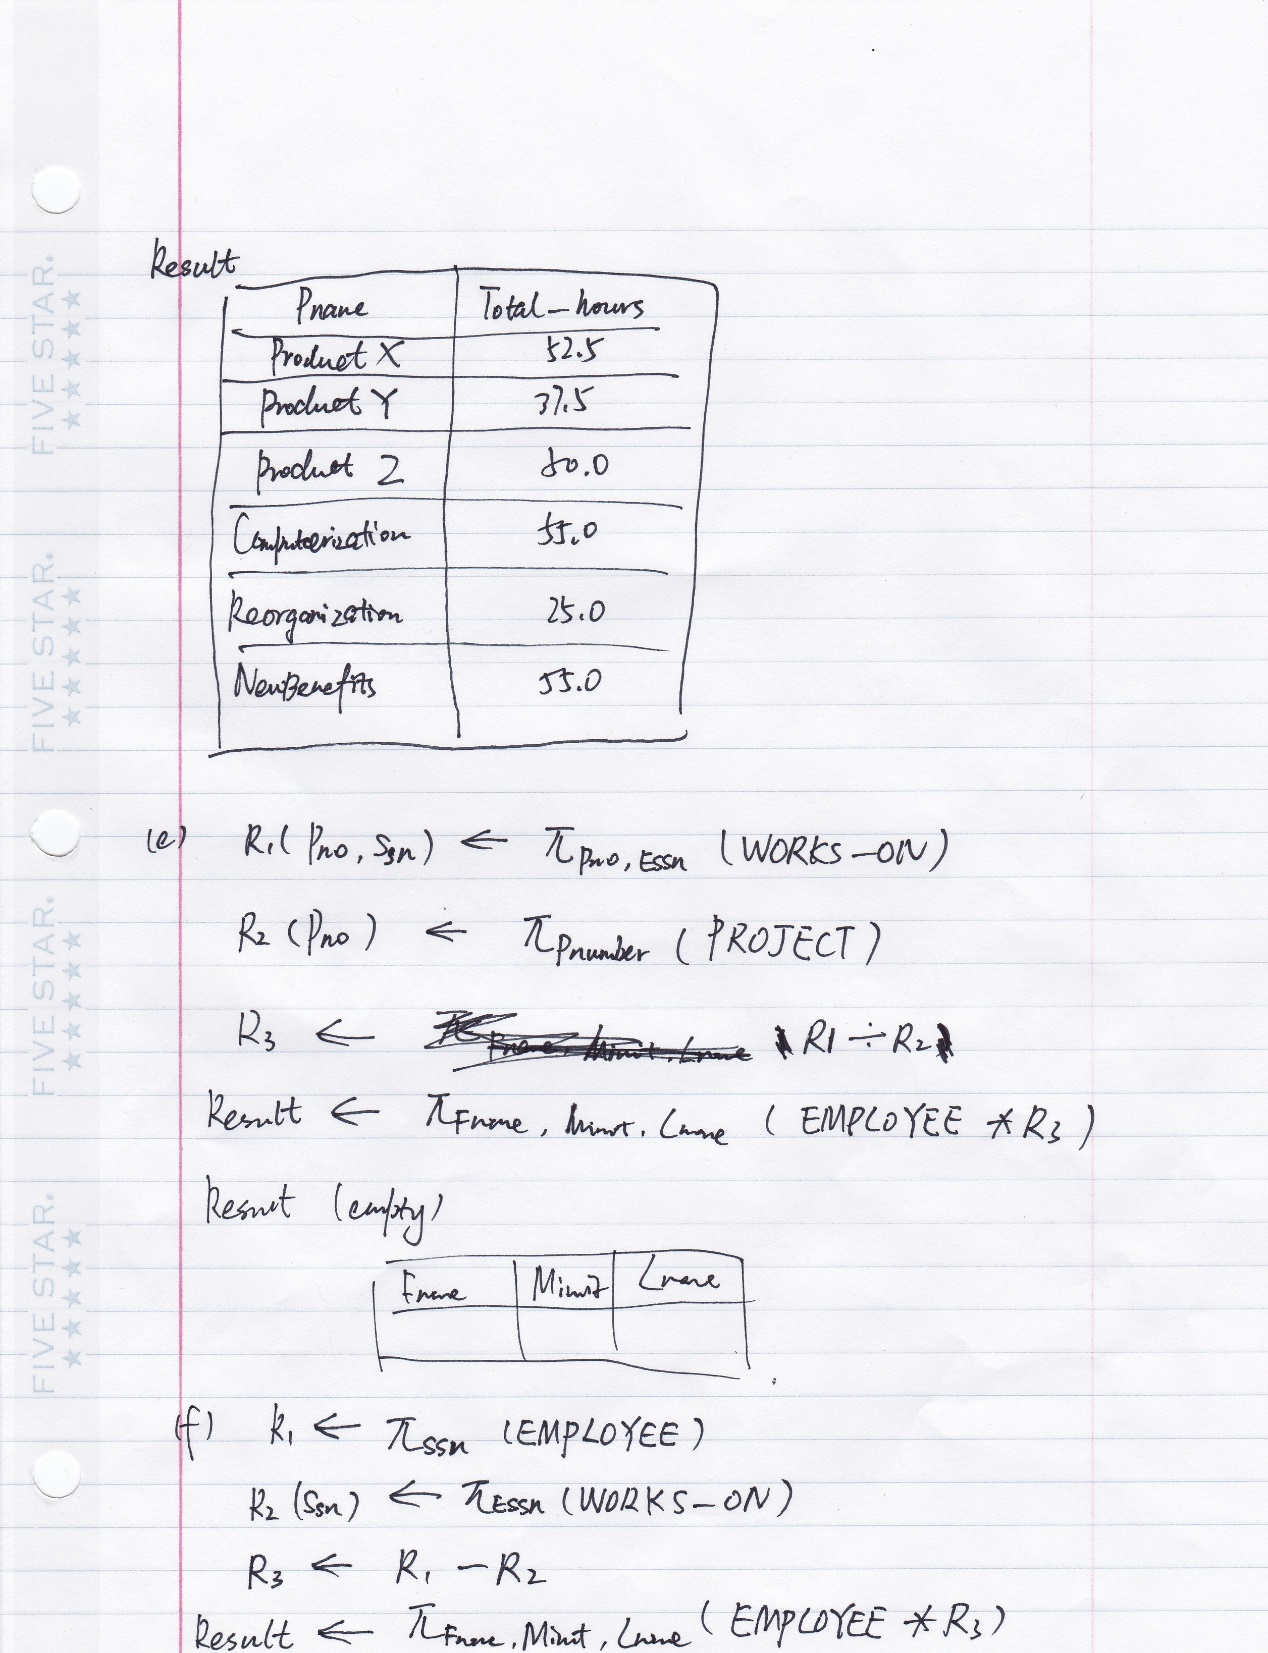 Result
Pname Total-hours
Product X 52.5
Product Y 37.5
Product Z 50.0
Computerization 55.0
Reorganization 25.0
NewBenefits 55.0
(e) R1( Pno, Ssn) ← π Pno, Essn (WORKS-ON)
R2 (Pno) ← π Pnumber (PROJECT)
R3 ← R1 ÷ R2
Result ← π Fname, Minit, Lname ( EMPLOYEE * R3 )
Result (empty)
Fname Minit Lname
(f) R1 ← π ssn (EMPLOYEE)
R2 (Ssn) ← π Essn (WORKS-ON)
R3 ← R1 - R2
Result ← π Fname, Minit, Lname ( EMPLOYEE * R3)
FIVE STAR.
FIVE STAR.
FIVE STAR.
FIVE STAR.